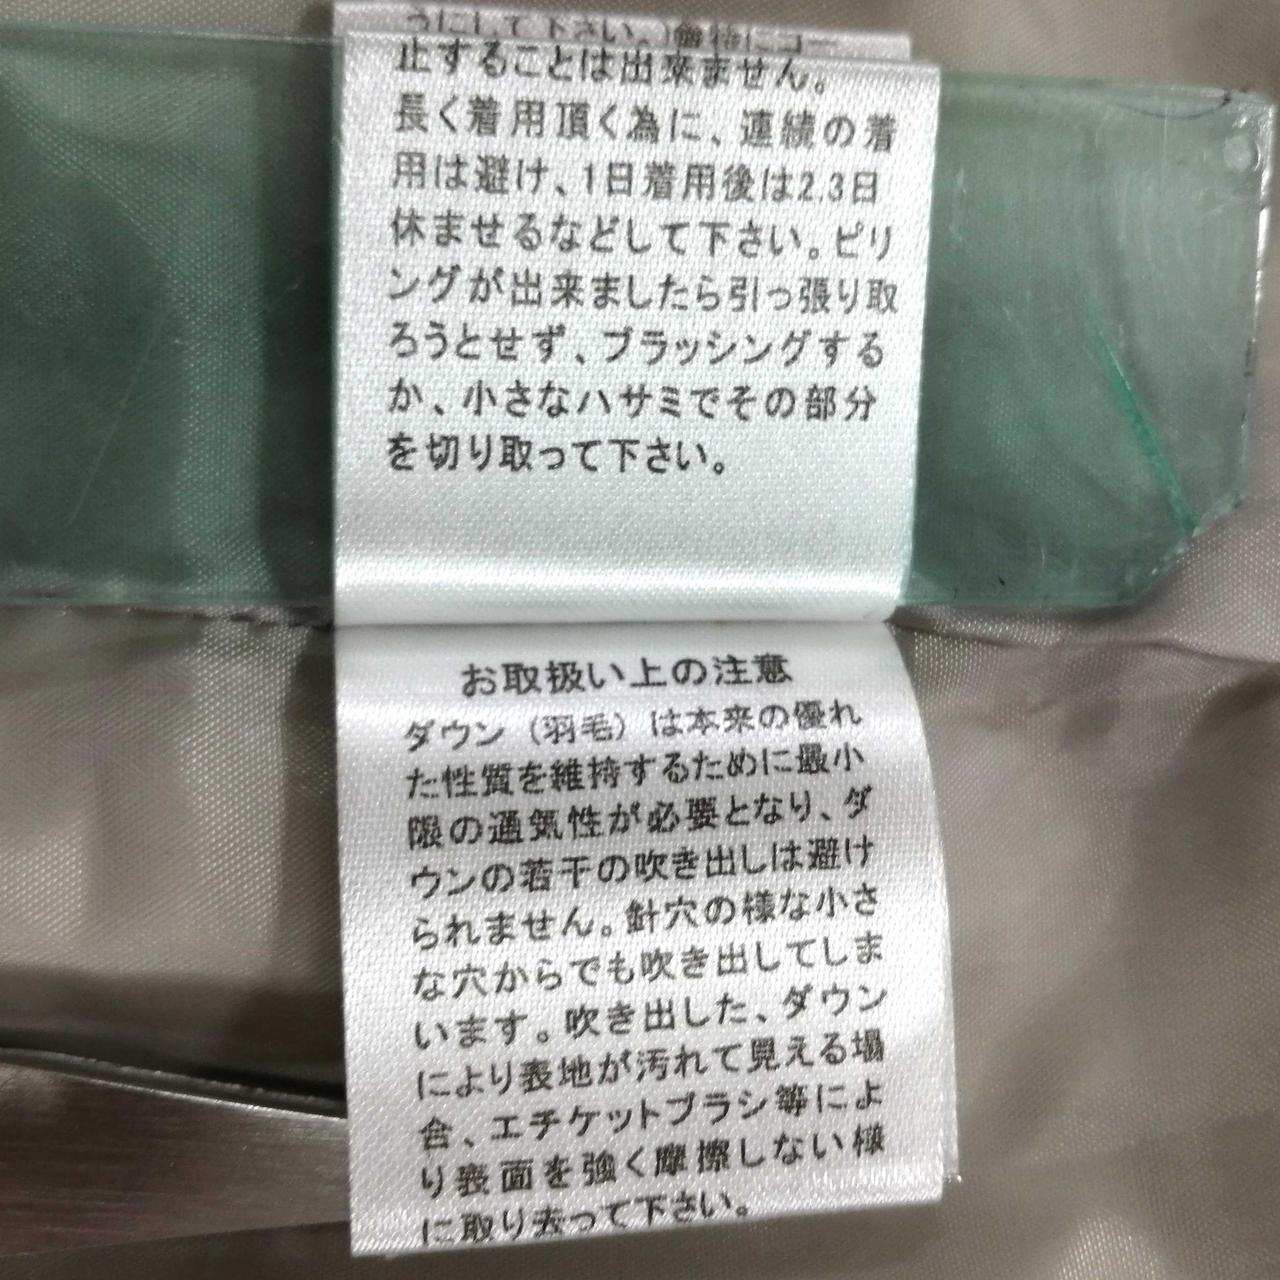 うにして下さい。
止することは出来ません。
長く着用頂く為に、連続の着
用は避け、1日着用後は2.3日
休ませるなどして下さい。ピリ
ングが出来ましたら引っ張り取
ろうとせず、ブラッシングする
か、小さなハサミでその部分
を切り取って下さい。
お取扱い上の注意
ダウン（羽毛）は本来の優れ
た性質を維持するために最小
限の通気性が必要となり、ダ
ウンの若干の吹き出しは避け
られません。針穴の様な小さ
な穴からでも吹き出してしま
います。吹き出した、ダウン
により表地が汚れて見える場
合、エチケットブラシ等によ
り表面を強く摩擦しない様
に取り去って下さい。